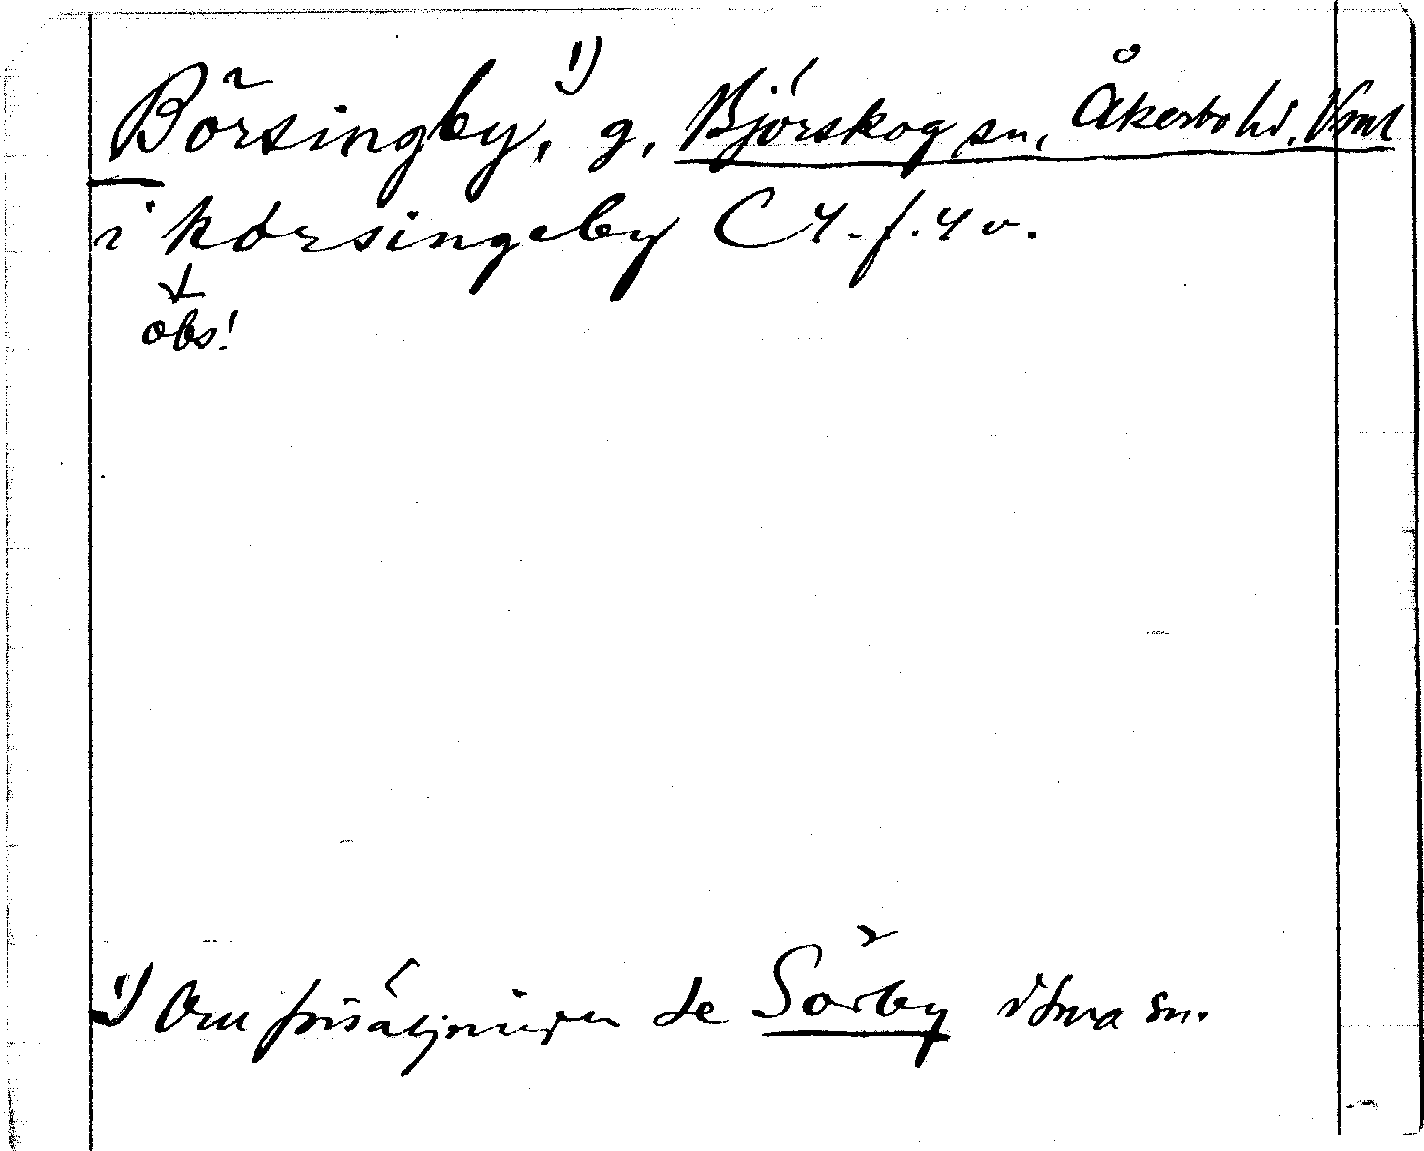 Börsingby,¹⁾ g. Björskog sn, Åkerbo hd. Vsml
i körsingeby C 4. f. 4 v.
obs!
¹⁾ Om försäljningen se Sörby i sma sn.